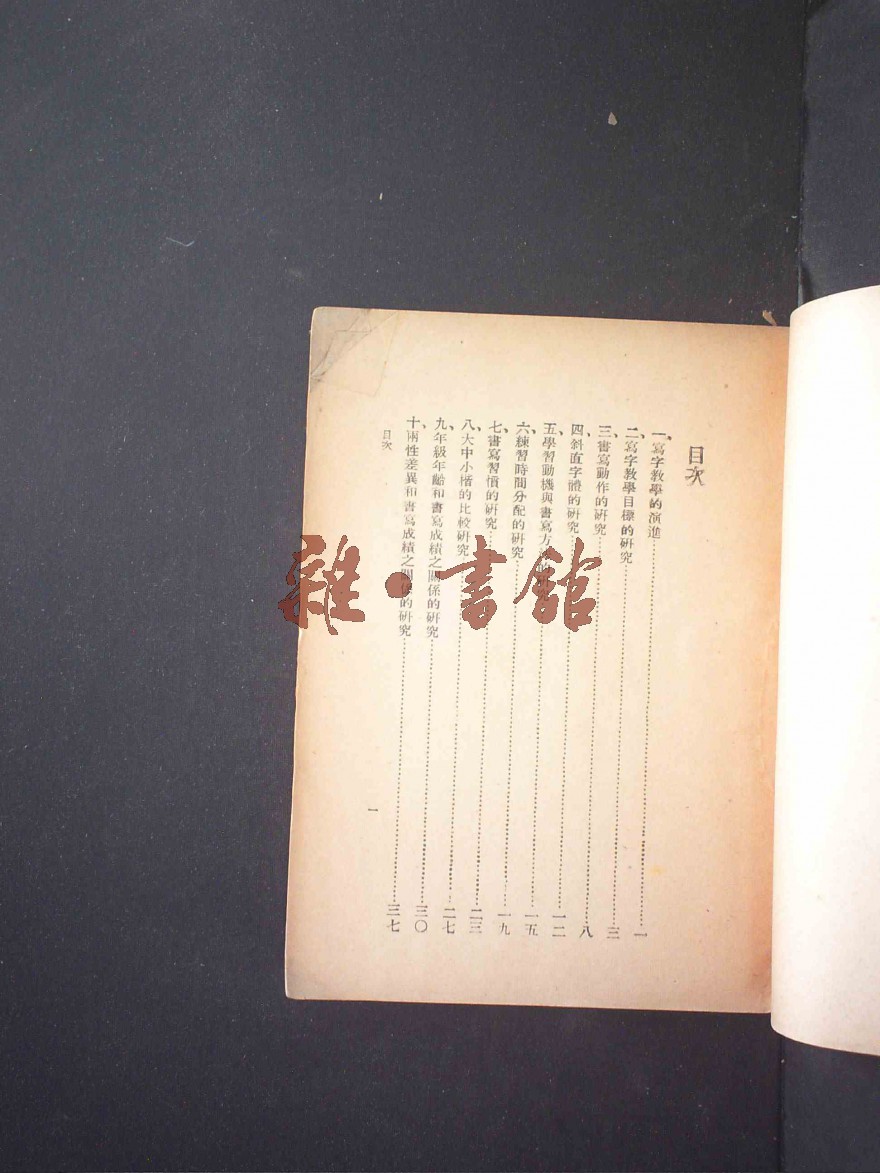 目次
一、寫字教學的演進……一
二、寫字教學目標的研究……三
三、書寫動作的研究……八
四、斜直字體的研究……一二
五、學習動機與書寫方
六、練習時間分配的研究……一九
七、書寫習慣的研究……二三
八、大中小楷的比較研究……二七
九、年級年齡和書寫成績之關係的研究……三〇
十、兩性差異和書寫成績之關係的研究……三七
目次
一
雜·書館